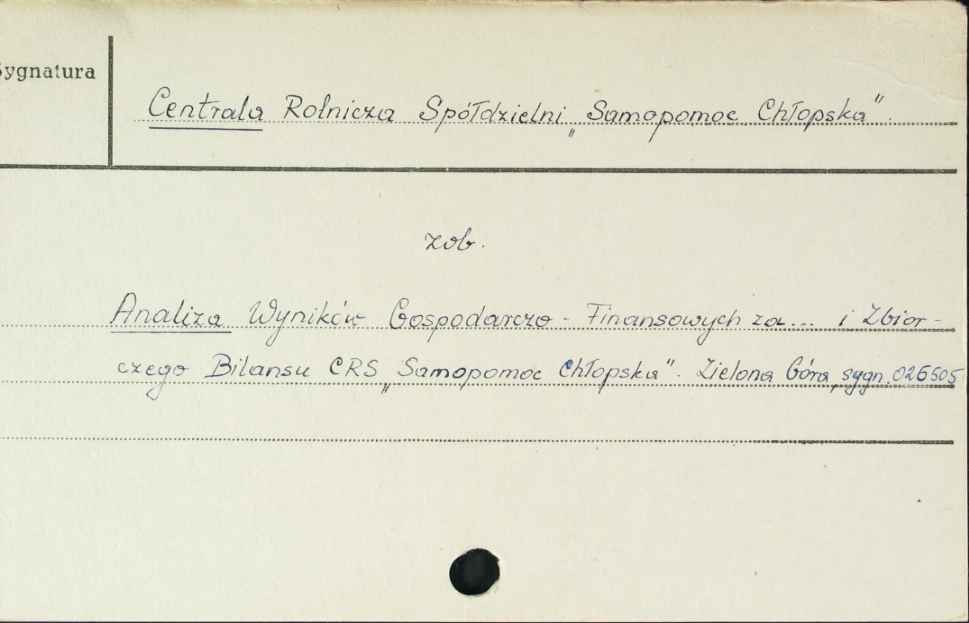 Sygnatura
Centrala Rolnicza Spółdzielni „Samopomoc Chłopska".
zob.
Analiza Wyników Gospodarczo - Finansowych za... i Zbior-
czego Bilansu CRS „Samopomoc Chłopska". Zielona Góra, sygn. 026505